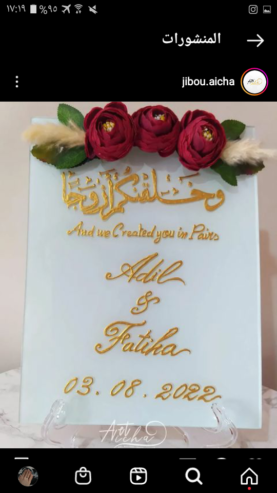 ١٧:١٩ %٩٥
المنشورات
jibou.aicha
وخلقنكم أزوجا
And we Created you in Pairs
Adil
&
Fatiha
03.08.2022